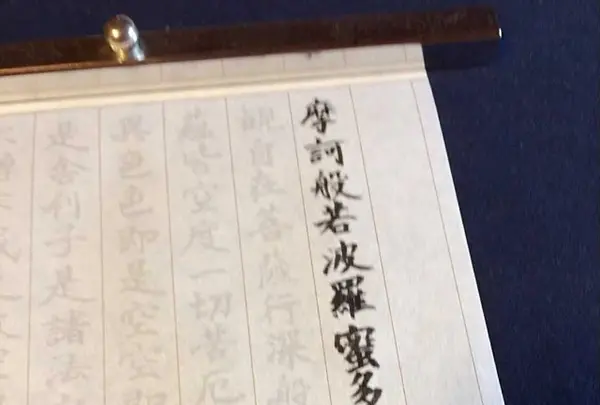 摩訶般若波羅蜜多
観自在菩薩行深般
蘊皆空度一切苦厄
異色色即是空空即
是舎利子是諸法